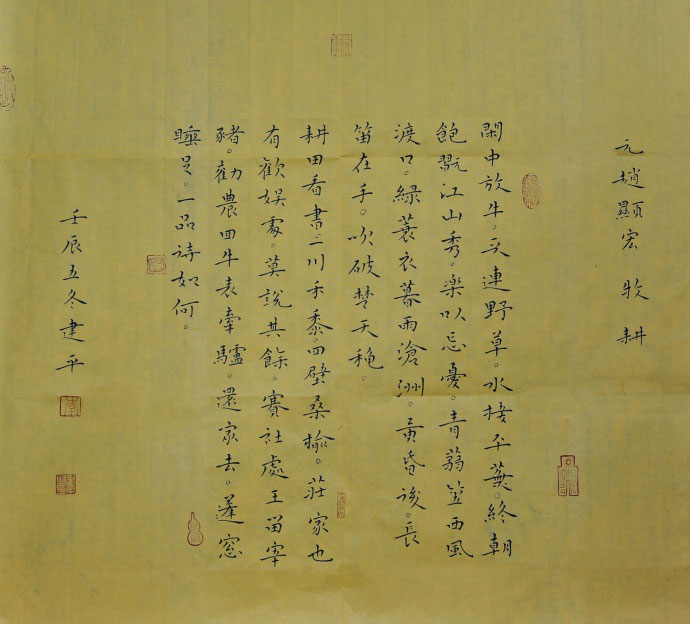 元趙顯宏 牧 耕
閑中放牛。天連野草。水接平蕪。終朝
飽翫江山秀。樂以忘憂。青蒻笠西風
渡口。綠蓑衣暮雨滄洲。黃昏後。長
笛在手。吹破楚天穐。
耕田看書。一川禾黍。四壁桑揄。莊家也
有歡娛處。莫說其餘。賽社處王畱宰
豬。勸農回牛表牽驢。還家去。蓬窓
睡足。一品詩如何。
壬辰五冬建平